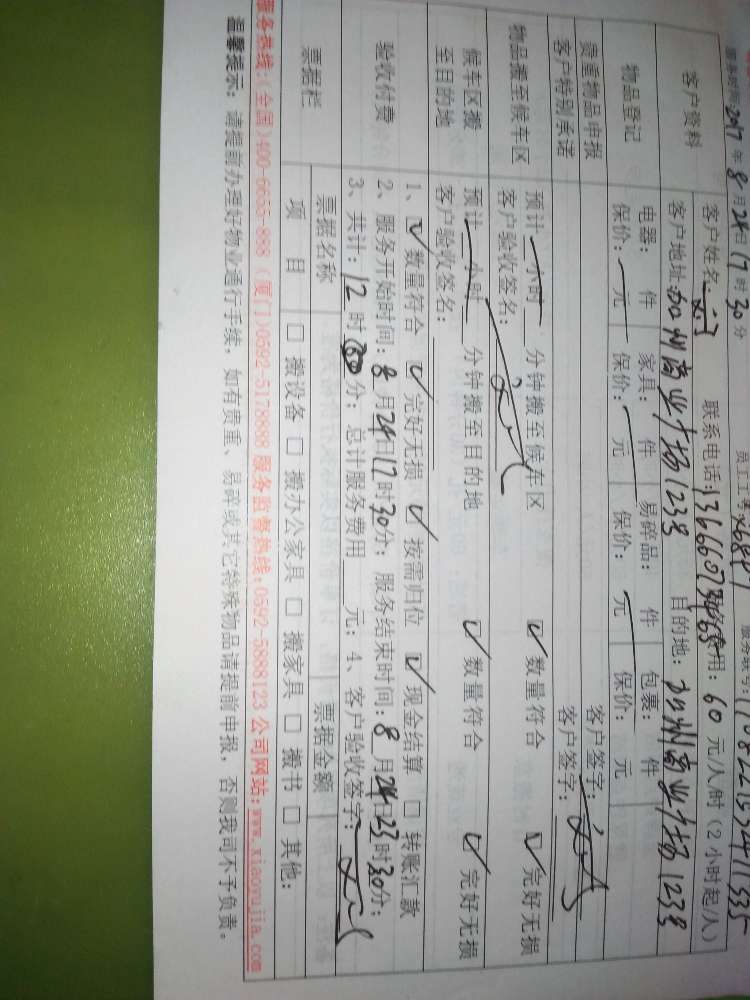 服务时间:2017年8月24日17时30分 员工工号:
客户资料 客户姓名: 联系电话: 服务费用:60元/人/时(2小时起/人)
客户地址:加州商业广场123号 目的地:加州商业广场123号
物品登记 电器: 件 家具: 件 易碎品: 件 包裹: 件
保价: 元 保价: 元 保价: 元 保价: 元
贵重物品申报 客户签字:
客户特别承诺 客户签字:
物品搬至候车区 预计 小时 分钟搬至候车区 数量符合 完好无损
客户验收签名:
候车区搬至目的地 预计 小时 分钟搬至目的地 数量符合 完好无损
客户验收签名:
验收付费 1、☑数量符合 ☑完好无损 ☑按需归位 ☑现金结算 □转账汇款
2、服务开始时间:8月24日17时30分; 服务结束时间:8月24日23时30分;
3、共计:12时 分; 总计服务费用 元; 4、客户验收签字:
票据栏 票据名称 票据金额
项目 □ 搬设备 □ 搬办公家具 □ 搬家具 □ 搬书 □ 其他:
服务热线:(全国)400-6655-898 (厦门)0592-5178888 服务监督热线:0592-5888123 公司网站:www.xiaoyujia.com
温馨提示: 请提前办理好物业通行手续, 如有贵重、易碎或其它特殊物品请提前申报, 否则我司不予负责。